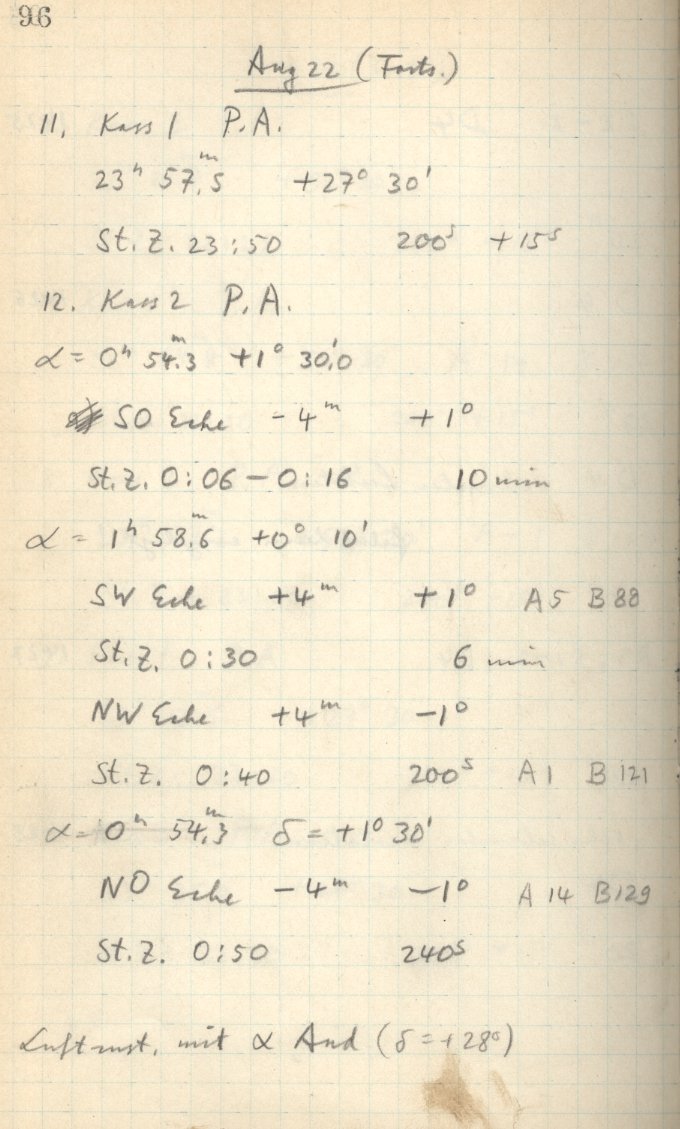 96
Aug 22 (Forts.)
11, Kass 1 P.A.
23ʰ 57ᵐ,5 +27° 30'
St.Z. 23:50 200ˢ +15ˢ
12. Kass 2 P.A.
α = 0ʰ 54ᵐ.3 +1° 30',0
SO Ecke -4ᵐ +1°
St.Z. 0:06 - 0:16 10 min
α = 1ʰ 58ᵐ,6 +0° 10'
SW Ecke +4ᵐ +1° A5 B 88
St.Z. 0:30 6 min
NW Ecke +4ᵐ -1°
St.Z. 0:40 200ˢ A1 B 121
α = 0ʰ 54ᵐ,3 δ = +1° 30'
NO Ecke -4ᵐ -1° A 14 B 129
St.Z. 0:50 240ˢ
mit α And (δ = +28°)